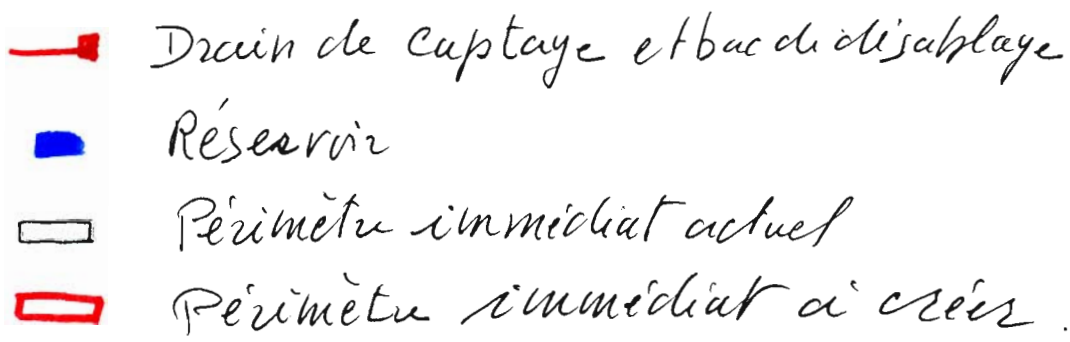 Drain de captage et bac de désablage
Réservoir
Périmètre immédiat actuel
Périmètre immédiat à créer.